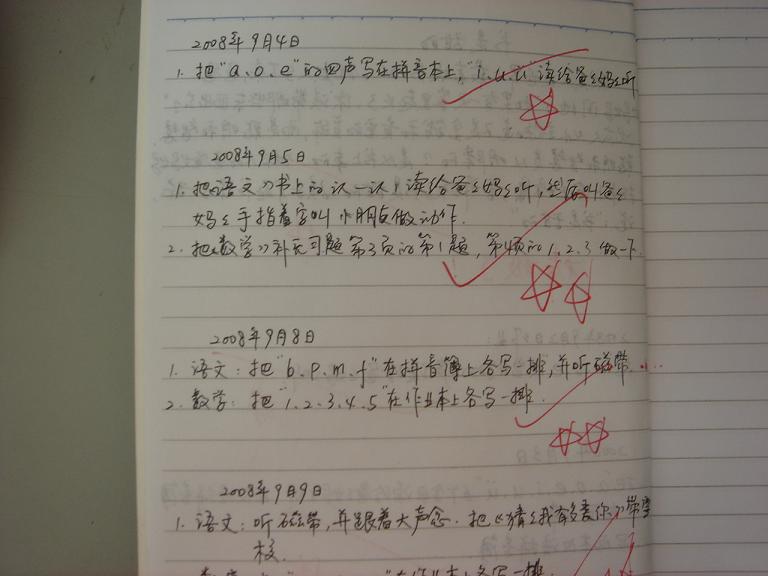 2008年9月4日
1. 把"a.o.e"的四声写在拼音本上,"i.u.ü"读给爸爸妈妈听
2008年9月5日
1. 把《语文》书上的认一认,读给爸爸妈妈听,然后叫爸爸
妈妈手指着字叫小朋友做动作.
2. 把《数学》补充习题第3页的第1题,第4页的1.2.3做一下.
2008年9月8日
1. 语文:把"b.p.m.f"在拼音簿上各写一排,并听磁带.
2. 数学:把"1.2.3.4.5"在作业本上各写一排.
2008年9月9日
1. 语文:听磁带,并跟着大声念.把《猜猜我有多爱你》带学
校.
在作业本上各写一排.